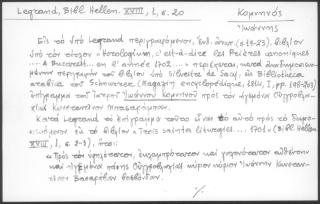 Legrand, Bibl. Hellen. XVIII, 1, σ. 20
Κομνηνός
Ἰωάννης
Εἰς τὸ ὑπὸ Legrand περιγραφόμενον, ἔνθ. ἀνωτ. (σ. 19-23), βιβλίον
ὑπὸ τὸν τίτλον «Horologium, c'est-à-dire les Prières canoniques
... A Bucarest... en l'année 1702...» περιέχεται, κατὰ
περιγραφὴν τοῦ βιβλίου ὑπὸ Silvestre de Sacy, ἐν Bibliotheca
arabica τοῦ Schnurrer (Magazin encyclopédique, 1814, I, pp.
ἐπίγραμμα τοῦ ἰατροῦ Ἰωάννου Κομνηνοῦ πρὸς τὸν ἡγεμόνα Οὑγγροβλαχίας
Κωνσταντῖνον Μπασαράμπαν.
Κατὰ Legrand τὸ ἐπίγραμμα τοῦτο εἶναι τὸ αὐτὸ πρὸς τὸ
ἐν τῷ βιβλίῳ «Trois saintes Liturgies... 1701» (Bibl. Hellen.
XVIII, 1, σ. 2-3), ἤτοι:
«Πρὸς τὸν ὑψηλότατον, εὐσεβέστατον καὶ γαληνότατον αὐθέντην
καὶ ἡγεμόνα πάσης Οὑγγροβλαχίας κύριον κύριον Ἰωάννην Κωνσταντῖνον
Βασαράβαν βοεβόνδαν.